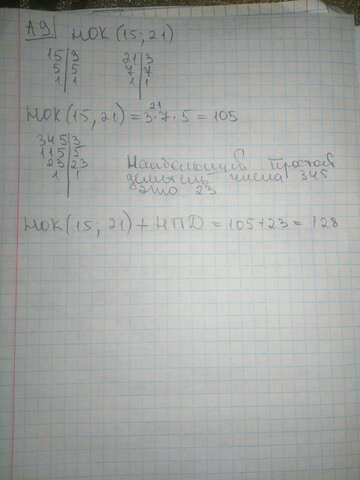 А9 НОК (15; 21)
15 3 21 3
5 5 7 7
1 1 1 1
21
НОК (15, 21) = 3·7·5 = 105
345 3
115 5
23 23 Наибольший простой
1 делитель числа 345
это 23
НОК (15, 21) + НПД = 105+23 = 128